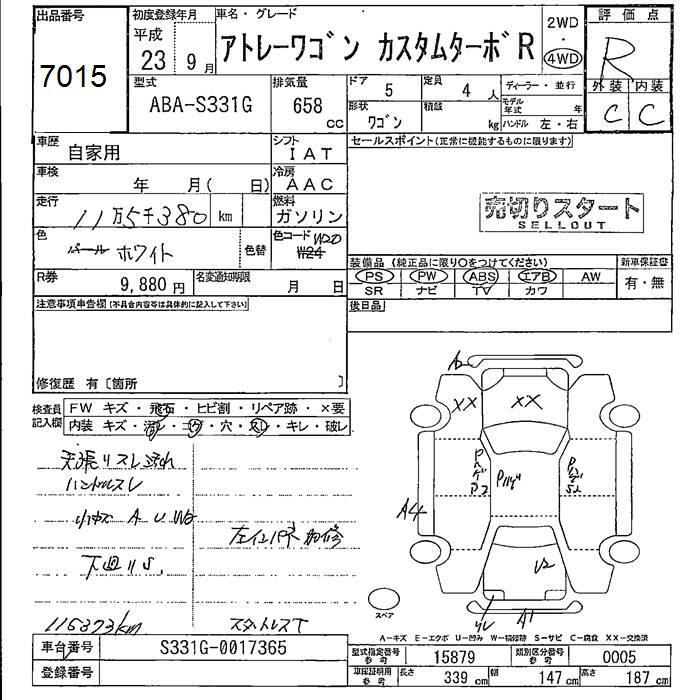 出品番号
7015
初度登録年月
平成
23年 9月
車名・グレード
アトレーワゴン カスタムターボR
2WD
・
4WD
評価点
R
外装 内装
C C
型式
ABA-S331G
排気量
658
cc
ドア
5
定員
4人
ディーラー・並行
形状
ワゴン
積載
kg
モデル年式 年
ハンドル 左・右
車歴
自家用
シフト
IAT
セールスポイント(正常に機能するものに限ります)
車検
年 月( 日)
冷房
AAC
走行
11万5千380 km
燃料
ガソリン
売切りスタート
SELLOUT
色
パール ホワイト
色替
色コード W20
W24
装備品 (純正品に限り○をつけてください)
新車保証書
PS PW ABS エアB AW
有・無
SR ナビ TV カワ
R券
9,880円
名変通知期限
月 日
後日品
注意事項申告欄(不具合内容等は具体的に記入して下さい)
修復歴 有〔箇所 〕
検査員
記入欄
FW キズ・飛石・ヒビ割・リペア跡・×要
内装 キズ・汚レ・コゲ・穴・スレ・キレ・破レ
天張リスレ汚れ
ハンドルスレ
小キズ A U W有
左インパネ加修
下廻りS.
115373km
スタットレスT
A2
XX
XX
Pハゲ
A4
U2
A1
スペア
A-キズ E-エクボ U-凹み W-補修跡 S-サビ C-腐食 XX-交換済
車台番号
S331G-0017365
型式指定番号
参考
15879
類別区分番号
参考
0005
登録番号
車保証明用
参考
長さ
339 cm
幅
147 cm
高さ
187 cm